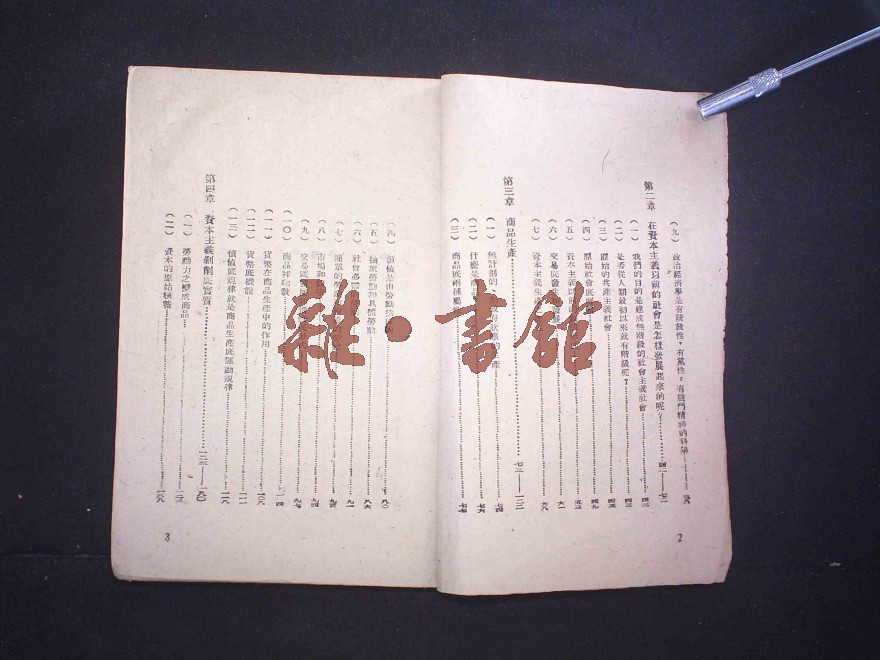 （九） 政治經濟學是有階級性，有黨性，有戰鬥精神的科學……三八
第二章 在資本主義以前的社會是怎樣發展起來的呢？……四二——七二
（一） 我們的目的是建成無階級的社會主義社會……四二
（二） 是否從人類最初以來就有階級呢？……四三
（三） 原始的共產主義社會……四五
（四） 原始社會底
（五） 資本主義以前
（六） 交易底發生
（七） 資本主義生產
第三章 商品生產……七三——一二二
（一） 無計劃的、無政府狀態的生產……七四
（二） 什麼是商品……七六
（三） 商品底兩種屬性……七七
2
（四） 價值是由勞動造成的……八〇
（五） 抽象勞動和具體勞動……八六
（六） 社會必需的勞動……九一
（七） 簡單的勞動
（八） 市場和
（九） 交易底
（一〇） 商品拜物教
（一一） 貨幣在商品生產中的作用……一〇九
（一二） 貨幣底機能
（一三） 價值底規律就是商品生產底運動規律……一一九
第四章 資本主義剝削底實質……一二三——一八〇
（一） 勞動力之變成商品……一二三
（二） 資本的原始積蓄
3
雜·書館